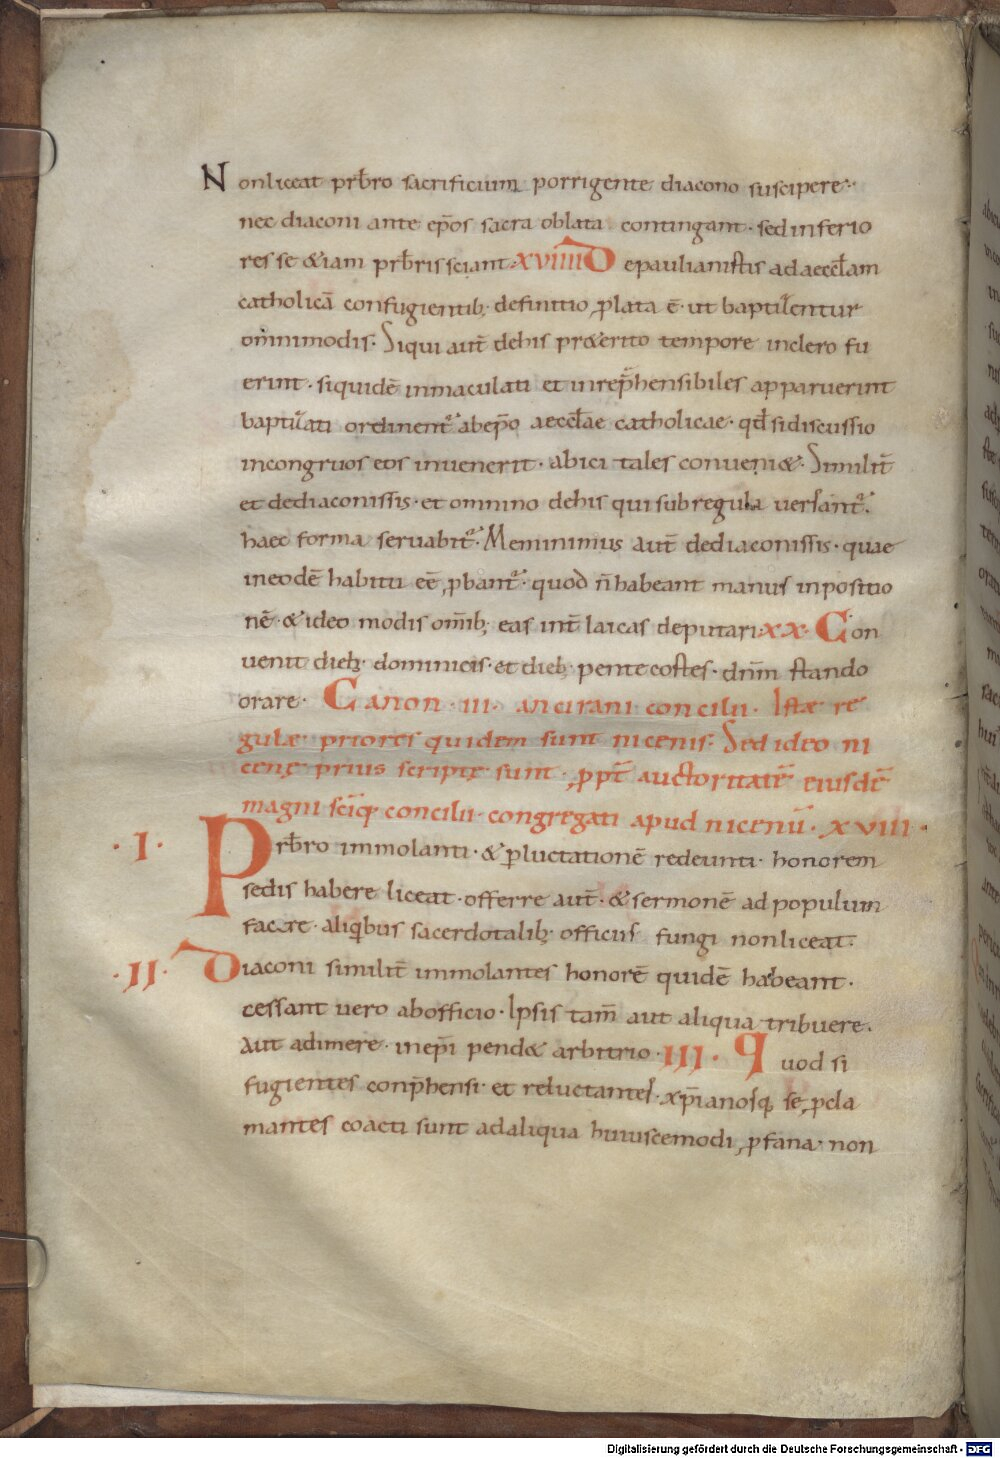 Nonliceat prb̄ro sacrificium porrigente diacono suscipere·
nec diaconi ante ep̄os sacra oblata contingant· sed inferio
res se &iam prb̄ris sciant· XVIIII De paulianistis ad aeccl̄am
catholicā confugientib; definitio ꝓlata ē· ut baptizentur
om̄nimodis· Siqui aut̄ dehis pr&erito tempore inclero fu
erint· siquidē inmaculati et inrep̄hensibiles apparuerint
baptizati ordinent᷑ abep̄o aeccl̄ae catholicae· qd̄ si discussio
incongruos eos inuenerit· abici tales conueni&· Similit̄
et dediaconissis· et omnino dehis qui sub regula uersant᷑·
haec forma seruabit᷑· Meminimus aut̄ dediaconissis· quae
ineodē habitu eē ꝓbant᷑· quod n̄ habeant manus inpositio
nē· & ideo modis om̄ib; eas int̄ laicas deputari· XX· Con
uenit dieb; dominicis· et dieb; pentecostes· dn̄m stando
orare· Canon · III · ancirani concilii· Istæ re
gulæ priores quidem sunt nicenis· Sed ideo ni
cenę prius scriptę sunt· ꝓpt̄ auctoritatē eiusdē
magni sc̄iq; concilii· congregati apud nicenū· XVIII·
·I· Prb̄ro immolanti· & ꝑluctationē redeunti· honorem
sedis habere liceat· offerre aut̄· & sermonē ad populum
facere· aliqibus sacerdotalib; officiis fungi nonliceat·
·II· Diaconi similit̄ immolantes honorē quidē habeant·
cessant uero abofficio· Ipsis tam̄ aut aliqua tribuere·
Aut adimere· inep̄i pend& arbitrio· III· Quod si
fugientes conp̄hensi· et reluctantes· xp̄ianosq; se ꝓcla
mantes coacti sunt adaliqua huiuscemodi ꝓfana· non
Digitalisierung gefördert durch die Deutsche Forschungsgemeinschaft - DFG